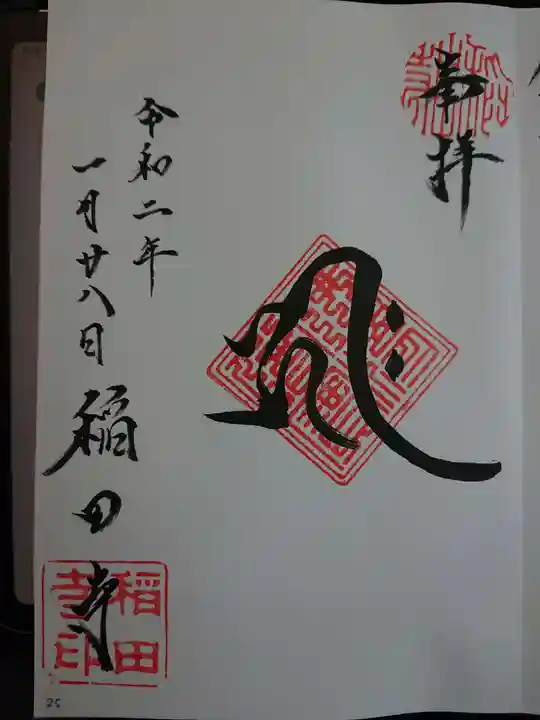 奉拝
令和二年
一月廿八日
稲田寺
稲田
寺印
25